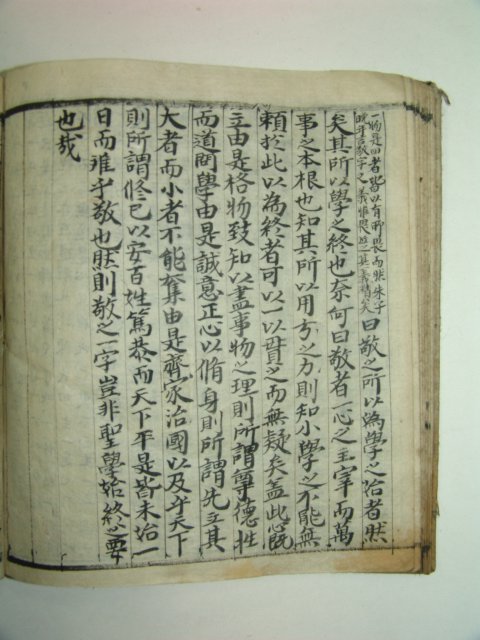 一物是四者皆以有所畏而然朱子
晩年言敬字之義惟畏爲近其義精矣
曰敬之所以為學之始者然
矣其所以學之終也奈何曰敬者一心之主宰而萬
事之本根也知其所以用力之方則知小學之不能無
賴於此以為終者可以一以貫之而無疑矣盖此心旣
立由是格物致知以盡事物之理則所謂尊德性
而道問學由是誠意正心以脩身則所謂先立其
大者而小者不能奪由是齊家治國以及乎天下
則所謂修己以安百姓篤恭而天下平是皆未始一
日而離乎敬也然則敬之一字豈非聖學始終之要
也哉